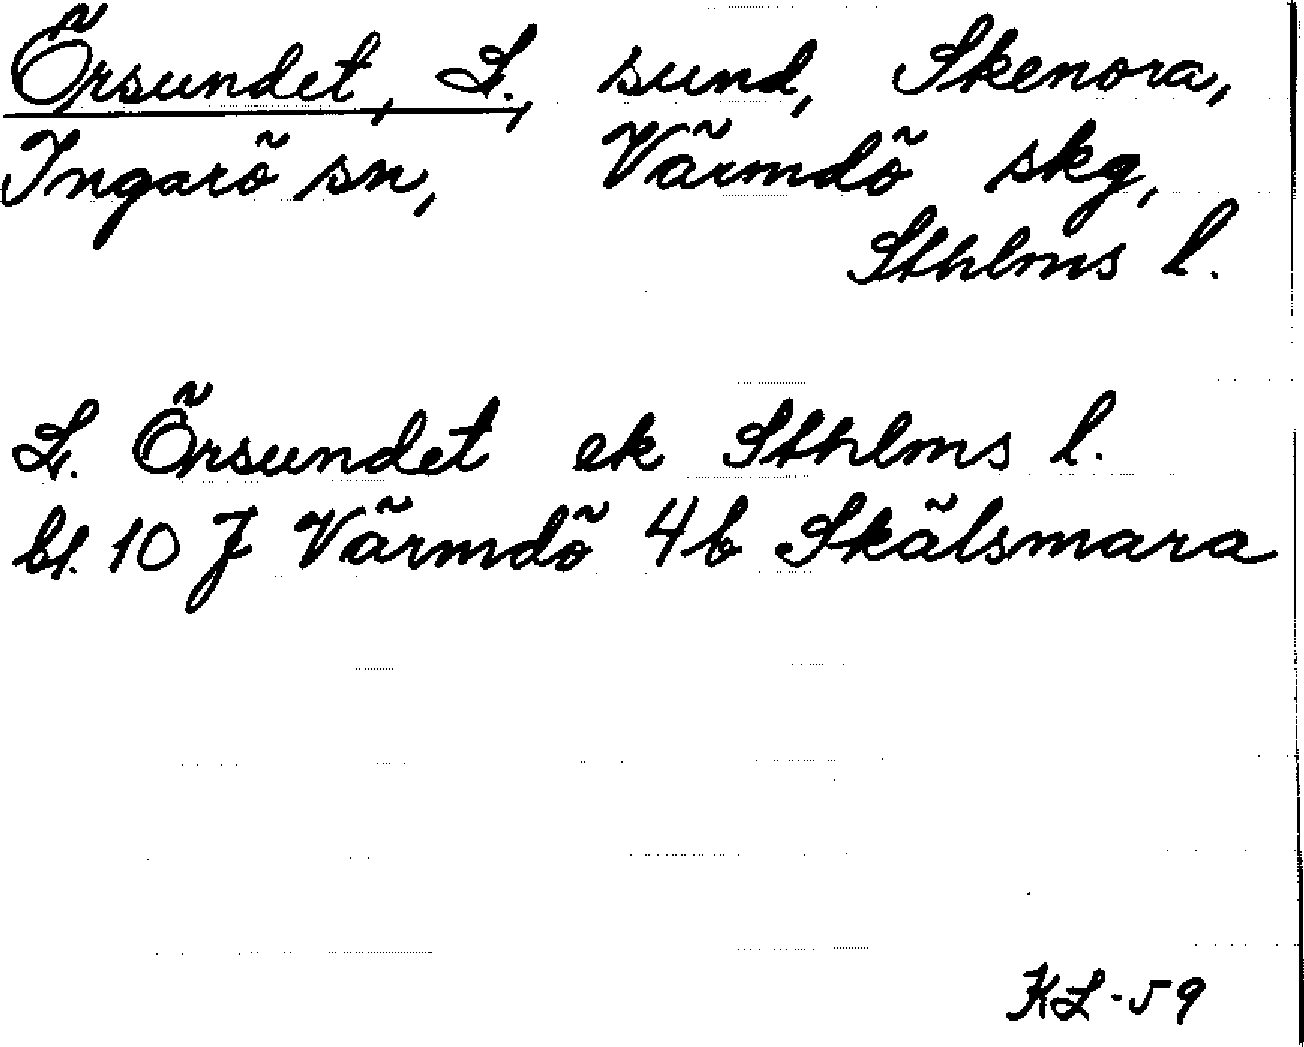 Örsundet, L., sund, Skenora,
Ingarö sn, Värmdö skg,
Sthlms l.
L. Örsundet ek Sthlms l.
bl. 10 J Värmdö 4b Skälsmara
KL-59